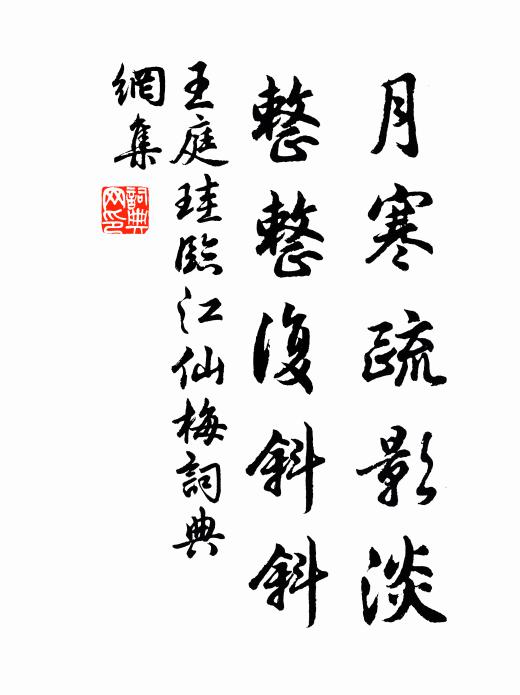 月寒疏影淡
整整復斜斜
王庭珪臨江仙梅詞典
網集
詞典網印